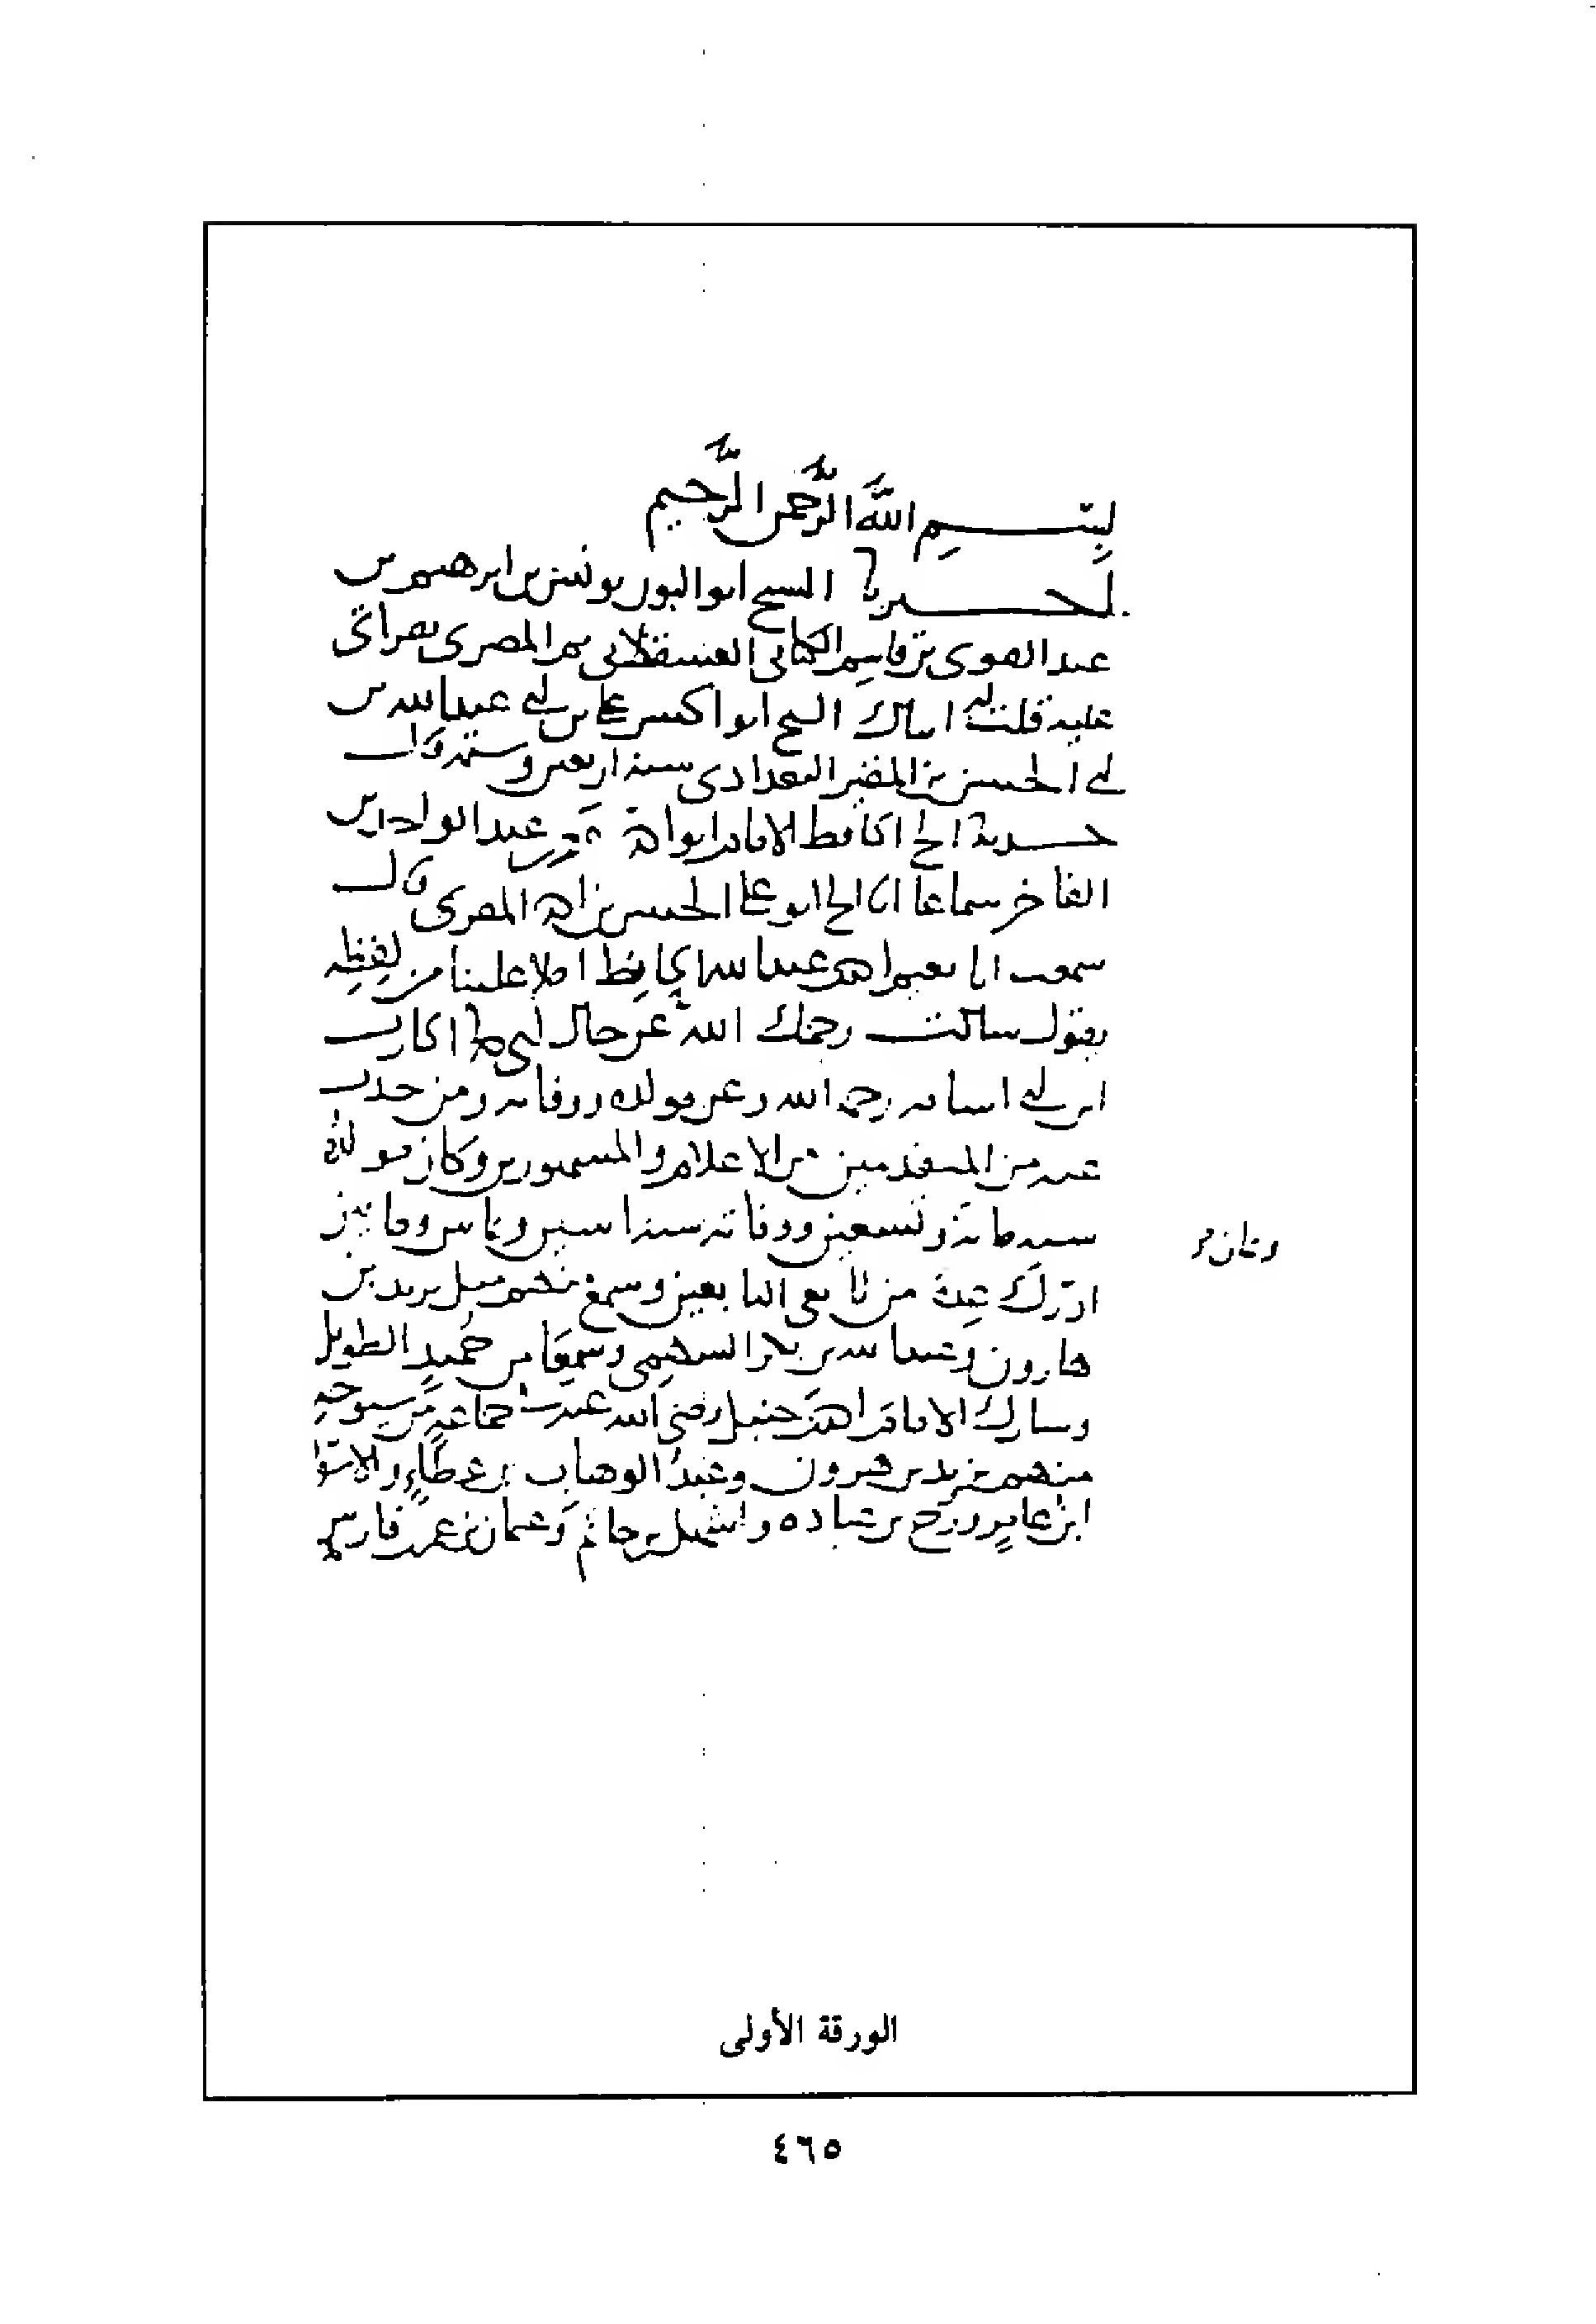 بسم الله الرحمن الرحيم
اخبرنا الشيخ ابو النون يونس بن ابرهيم بن
عبد القوى بن قاسم الكنانى العسقلانى ثم المصرى بقراتى
عليه قلت له اساك الشيخ ابو الحسن على بن ابى عبد الله بن
ابى الحسن بن المقير البغدادى سنة اربعين وستمه قال
عبد الواحد بن
الفاخر سماعا انا ابو على الحسن بن احمد المقرى قال
سمعت ابا نعيم احمد بن عبد الله الحافظ املا علينا من لفظه
يقول سالت رحمك الله عن حال ابى محمد الحارث
ابن ابى اسامه رحمه الله وعن مولده ووفاته ومن حدث
عنه من المتقدمين من الاعلام والمشهورين وكان مولده
سنه مائة وتسعين ووفاته سنة اثنين وثمانين ومايتين
وثمان
ادرك عدة من تابعى التابعين وسمع منهم مثل يزيد بن
هارون وعبد الله بن بكر السهمى وسمعا من حميد الطويل
وشارك الامام احمد بن حنبل رضى الله عنه فى جماعة من شيوخه
منهم يزيد بن هرون وعبد الوهاب بن عطاء والاسود
ابن عامر وروح بن عباده واشهل بن حاتم وعثمان بن عمر بن فارس
الورقة الأولى
٤٦٥